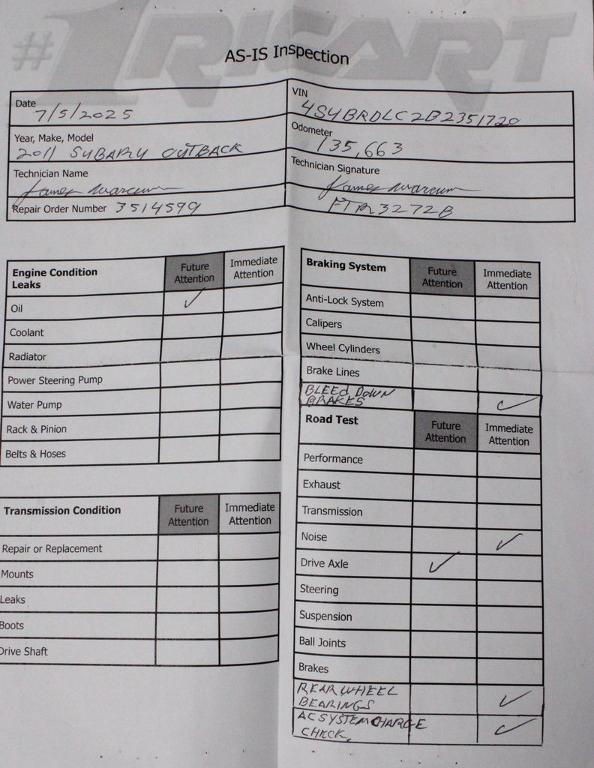 #1 RICART
AS-IS Inspection
Date 7/5/2025
VIN 4S4BRDLC2B2351720
Year, Make, Model 2011 SUBARU OUTBACK
Odometer 135,663
Technician Name
Technician Signature
Repair Order Number 3514599
Engine Condition Leaks Future Attention Immediate Attention
Oil ✓
Coolant
Radiator
Power Steering Pump
Water Pump
Rack & Pinion
Belts & Hoses
Transmission Condition Future Attention Immediate Attention
Repair or Replacement
Mounts
Leaks
Boots
Drive Shaft
Braking System Future Attention Immediate Attention
Anti-Lock System
Calipers
Wheel Cylinders
Brake Lines
BLEED DOWN
BRAKES ✓
Road Test Future Attention Immediate Attention
Performance
Exhaust
Transmission
Noise ✓
Drive Axle ✓
Steering
Suspension
Ball Joints
Brakes
REAR WHEEL
BEARINGS ✓
AC SYSTEM CHARGE
CHECK. ✓